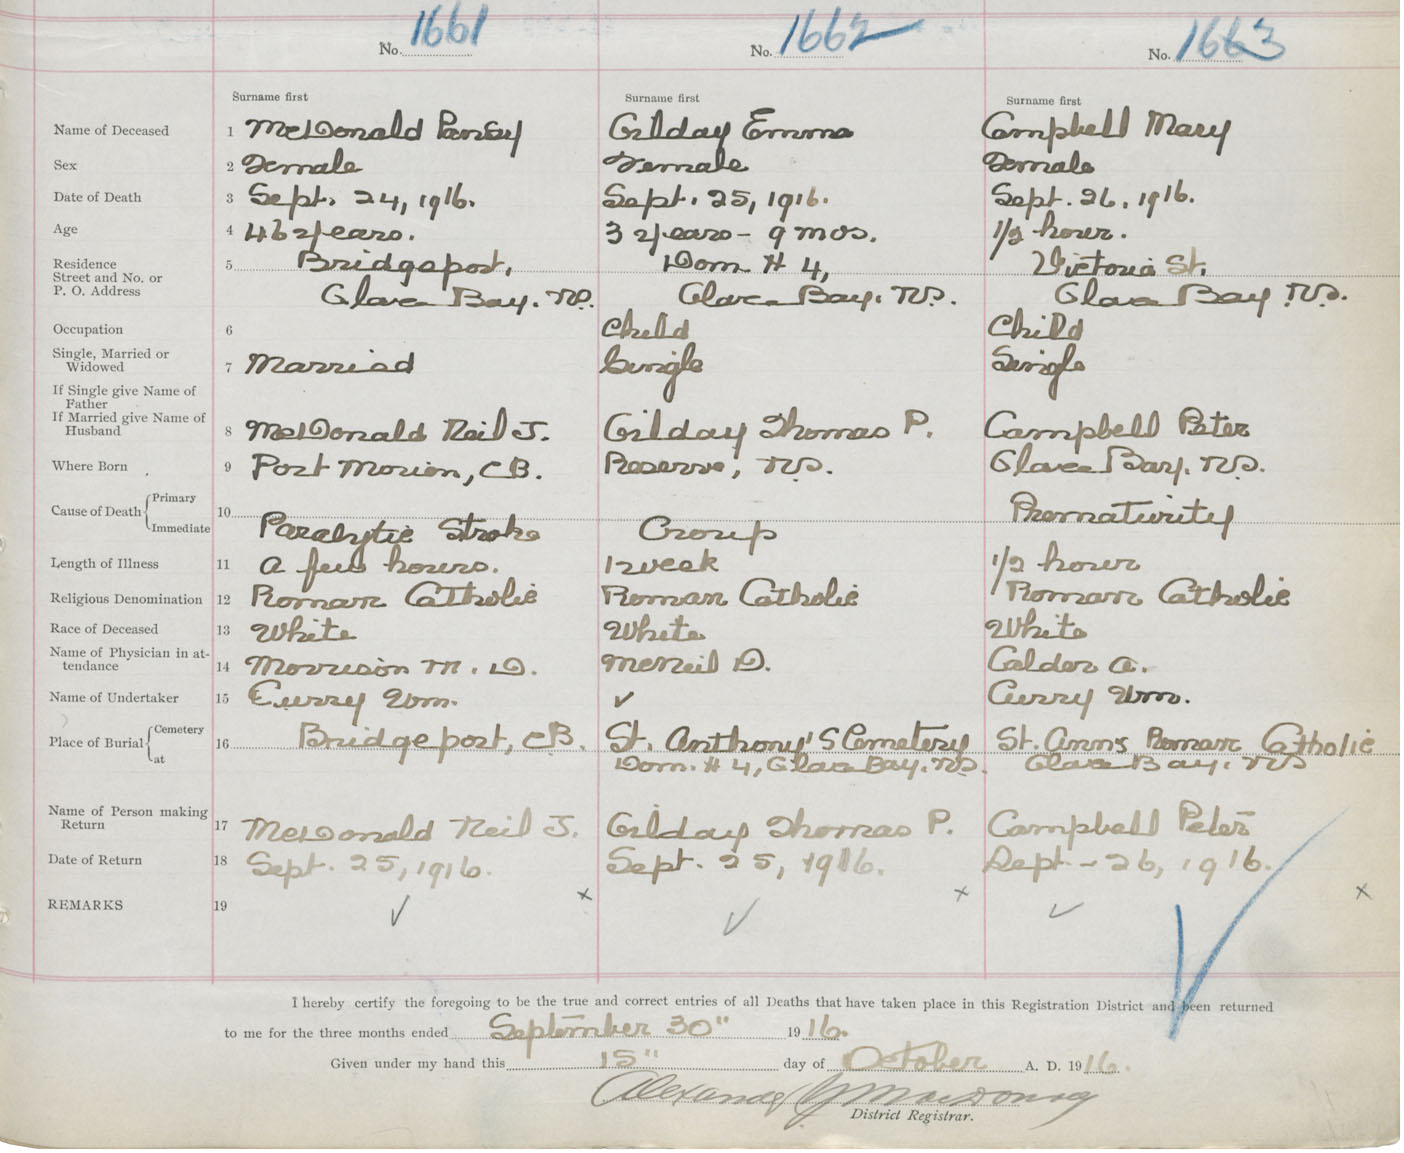 No. 1661 No. 1662 No. 1663
Surname first Surname first Surname first
Name of Deceased 1 McDonald Pansy Gilday Emma Campbell Mary
Sex 2 Female Female Female
Date of Death 3 Sept. 24, 1916. Sept. 25, 1916. Sept. 26, 1916.
Age 4 46 years. 3 years - 9 mos. 1/2 hour.
Residence 5 Bridgeport, Dom # 4, Victoria St.
Street and No. or
P. O. Address Glace Bay. NS. Glace Bay. NS. Glace Bay. NS.
Occupation 6 Child Child
Single, Married or
Widowed 7 Married Single Single
If Single give Name of
Father
If Married give Name of
Husband 8 McDonald Neil J. Gilday Thomas P. Campbell Peter
Where Born 9 Port Morien, CB. Reserve, NS. Glace Bay. NS.
Primary
Cause of Death 10 Prematurity
Immediate Paralytic Stroke Croup
Length of Illness 11 a few hours. 1 week 1/2 hour
Religious Denomination 12 Roman Catholic Roman Catholic Roman Catholic
Race of Deceased 13 White White White
Name of Physician in at-
tendance 14 Morrison M. D. McNeil D. Calder A.
Name of Undertaker 15 Curry Wm. ✓ Curry Wm.
Cemetery
Place of Burial 16 Bridgeport, CB. St. Anthony's Cemetery St. Anns Roman Catholic
at Dom. # 4, Glace Bay. NS. Glace Bay. NS
Name of Person making
Return 17 McDonald Neil J. Gilday Thomas P. Campbell Peter
Date of Return 18 Sept. 25, 1916. Sept. 25, 1916. Sept - 26, 1916.
REMARKS 19 ✓ x ✓ x ✓ x
I hereby certify the foregoing to be the true and correct entries of all Deaths that have taken place in this Registration District and been returned
to me for the three months ended September 30" 1916.
Given under my hand this 15" day of October A. D. 1916.
Alexander
District Registrar.